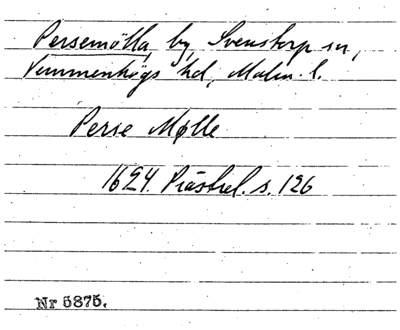 Persemölla, by, Svenstorp sn,
Vemmenhögs hd, Malm. l.
Perse Mølle
1624. Prästrel. s. 126
Nr 5875.